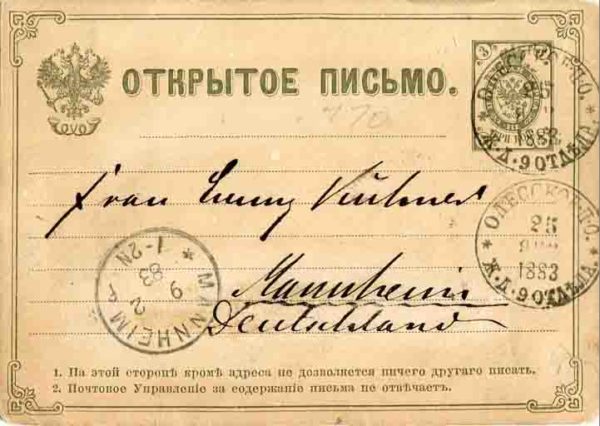 ОТКРЫТОЕ ПИСЬМО.
3
ОДЕССКОЕ П.О.
25
1883
Ж.Д. 9 ОТДѢЛ.
Frau
ОДЕССКОЕ П.О.
25
ЯНВ
1883
Ж.Д. 9 ОТДѢЛ.
MANNHEIM
9 2
83
1-2N
Mannheim
Deutschland
1. На этой сторонѣ кромѣ адреса не дозволяется ничего другаго писать.
2. Почтовое Управленіе за содержаніе письма не отвѣчаетъ.